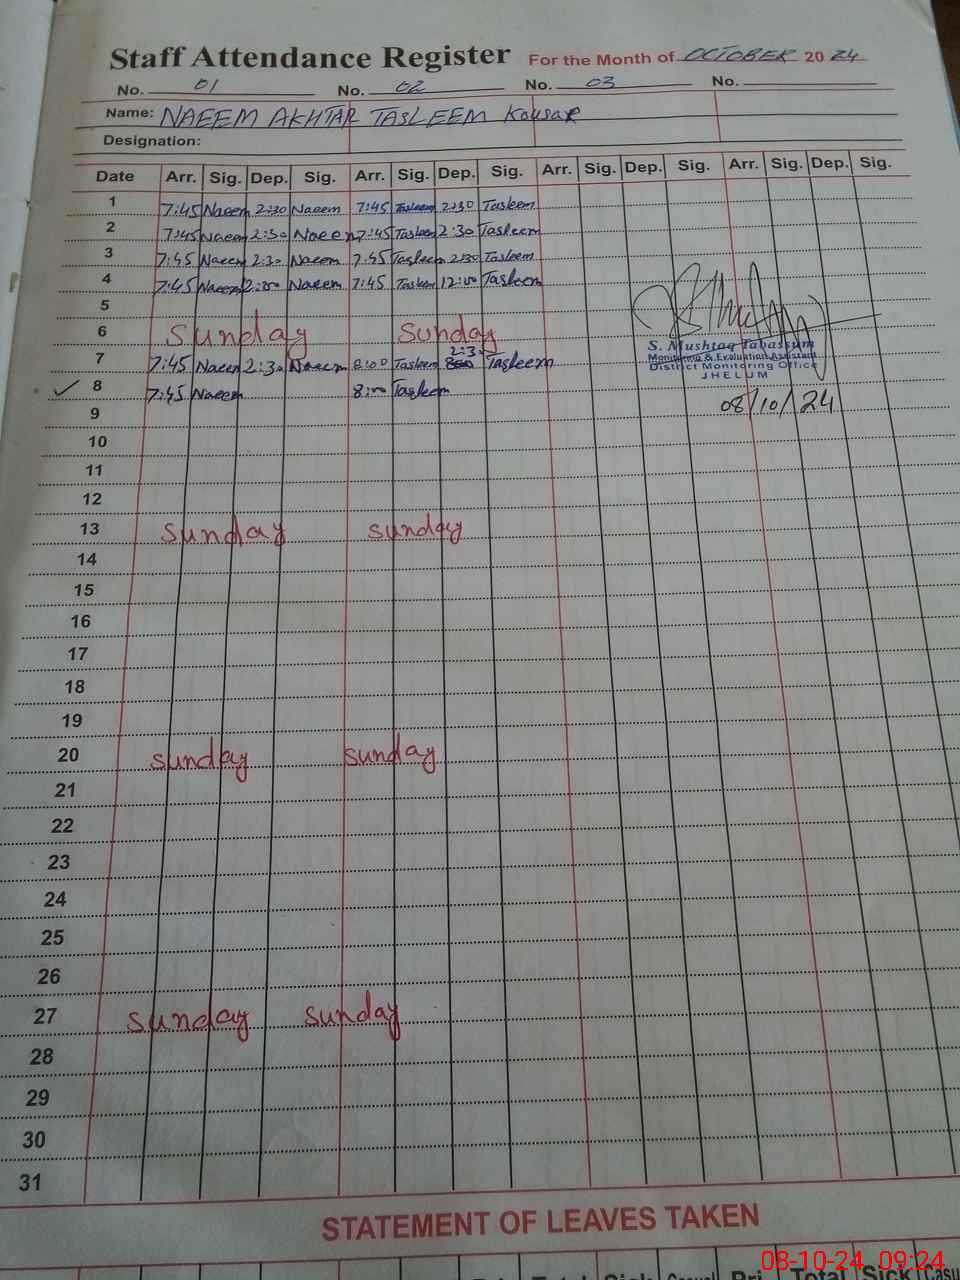 Staff Attendance Register For the Month of OCTOBER 20 24
No. 01 No. 02 No. 03 No.
Name: NAEEM AKHTAR TASLEEM Kousar
Designation:
Date Arr. Sig. Dep. Sig. Arr. Sig. Dep. Sig. Arr. Sig. Dep. Sig. Arr. Sig. Dep. Sig.
1 7:45 Naeem 2:30 Naeem 7:45 Tasleem 2:30 Tasleem
2 7:45 Naeem 2:30 Naeem 7:45 Tasleem 2:30 Tasleem
3 7:45 Naeem 2:30 Naeem 7:45 Tasleem 2:30 Tasleem
4 7:45 Naeem Naeem 7:45 Tasleem 12:00 Tasleem
5
6 Sunday Sunday
7 7:45 Naeem 2:30 Naeem 8:00 Tasleem 2:30 Tasleem
S. Mushtaq Tabassum
Monitoring & Evaluation Assistant
District Monitoring Office
JHELUM
8 7:45 Naeem 8:00 Tasleem
08/10/24
9
10
11
12
13 Sunday Sunday
14
15
16
17
18
19
20 Sunday Sunday
21
22
23
24
25
26
27 Sunday Sunday
28
29
30
31
STATEMENT OF LEAVES TAKEN
Total Sick
08-10-24 09:24